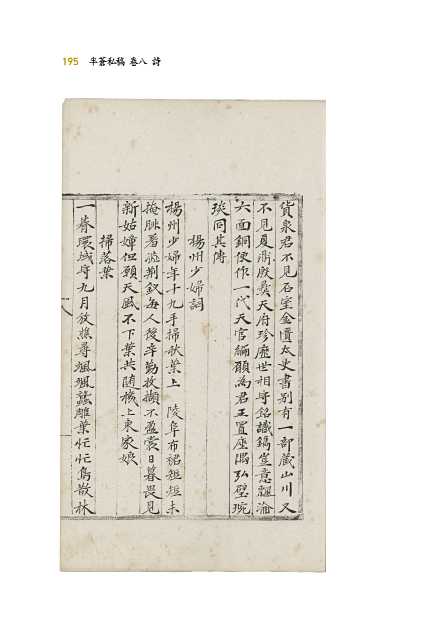 195 半蒼私稿 卷八 詩
貨泉君不見石室金匱太史書別有一部藏山川又
不見夏鼎殷彝天府珍歷世相守銘識鐫豈意飄淪
六面銅使作一代天官緬願為君王置座隅弘璧琬
琰同其傳
楊州少婦詞
楊州少婦年十九手掃秋葉上陵阜布裙短短未
掩脚著澁荊釵每人後辛勤收擷不盈裳日暮畏見
新姑嫜但願天風不下葉共隨機上東家娘
掃落葉
一暮環城府九月放樵尋颯颯蠶雕葉忙忙鳥散林